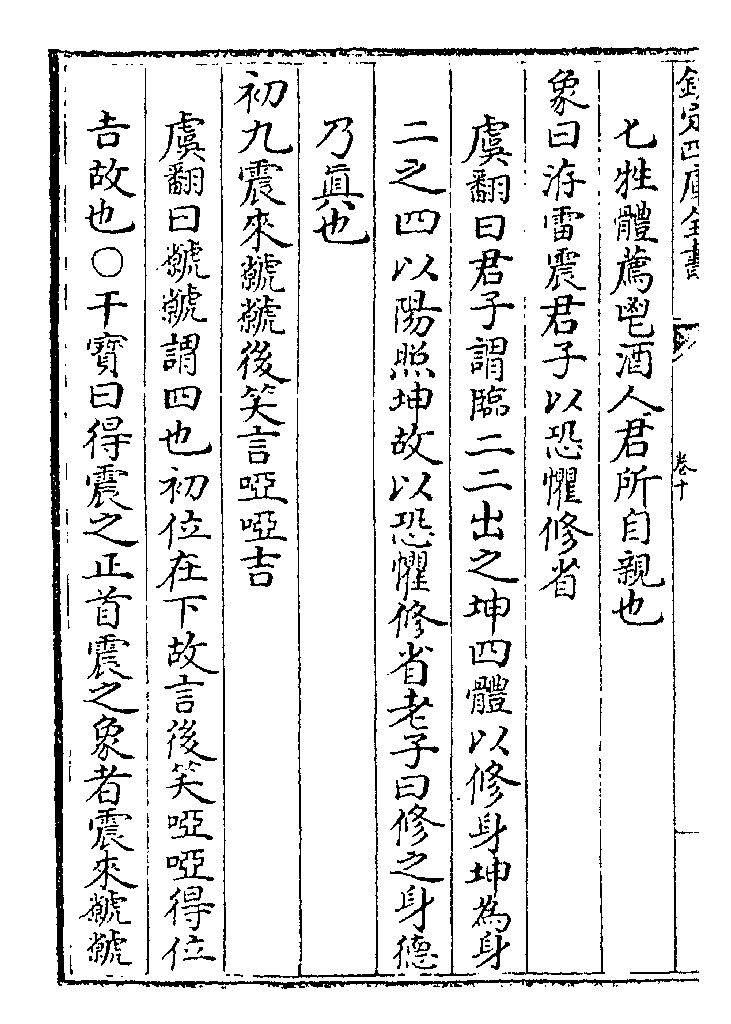 欽定四庫全書
卷十
匕牲體薦鬯酒人君所自親也
象曰洊雷震君子以恐懼修省
虞翻曰君子謂臨二二出之坤四體以修身坤為身
二之四以陽照坤故以恐懼修省老子曰修之身德
乃眞也
初九震來虩虩後笑言啞啞吉
虞翻曰虩虩謂四也初位在下故言後笑啞啞得位
吉故也○干寳曰得震之正首震之象者震來虩虩